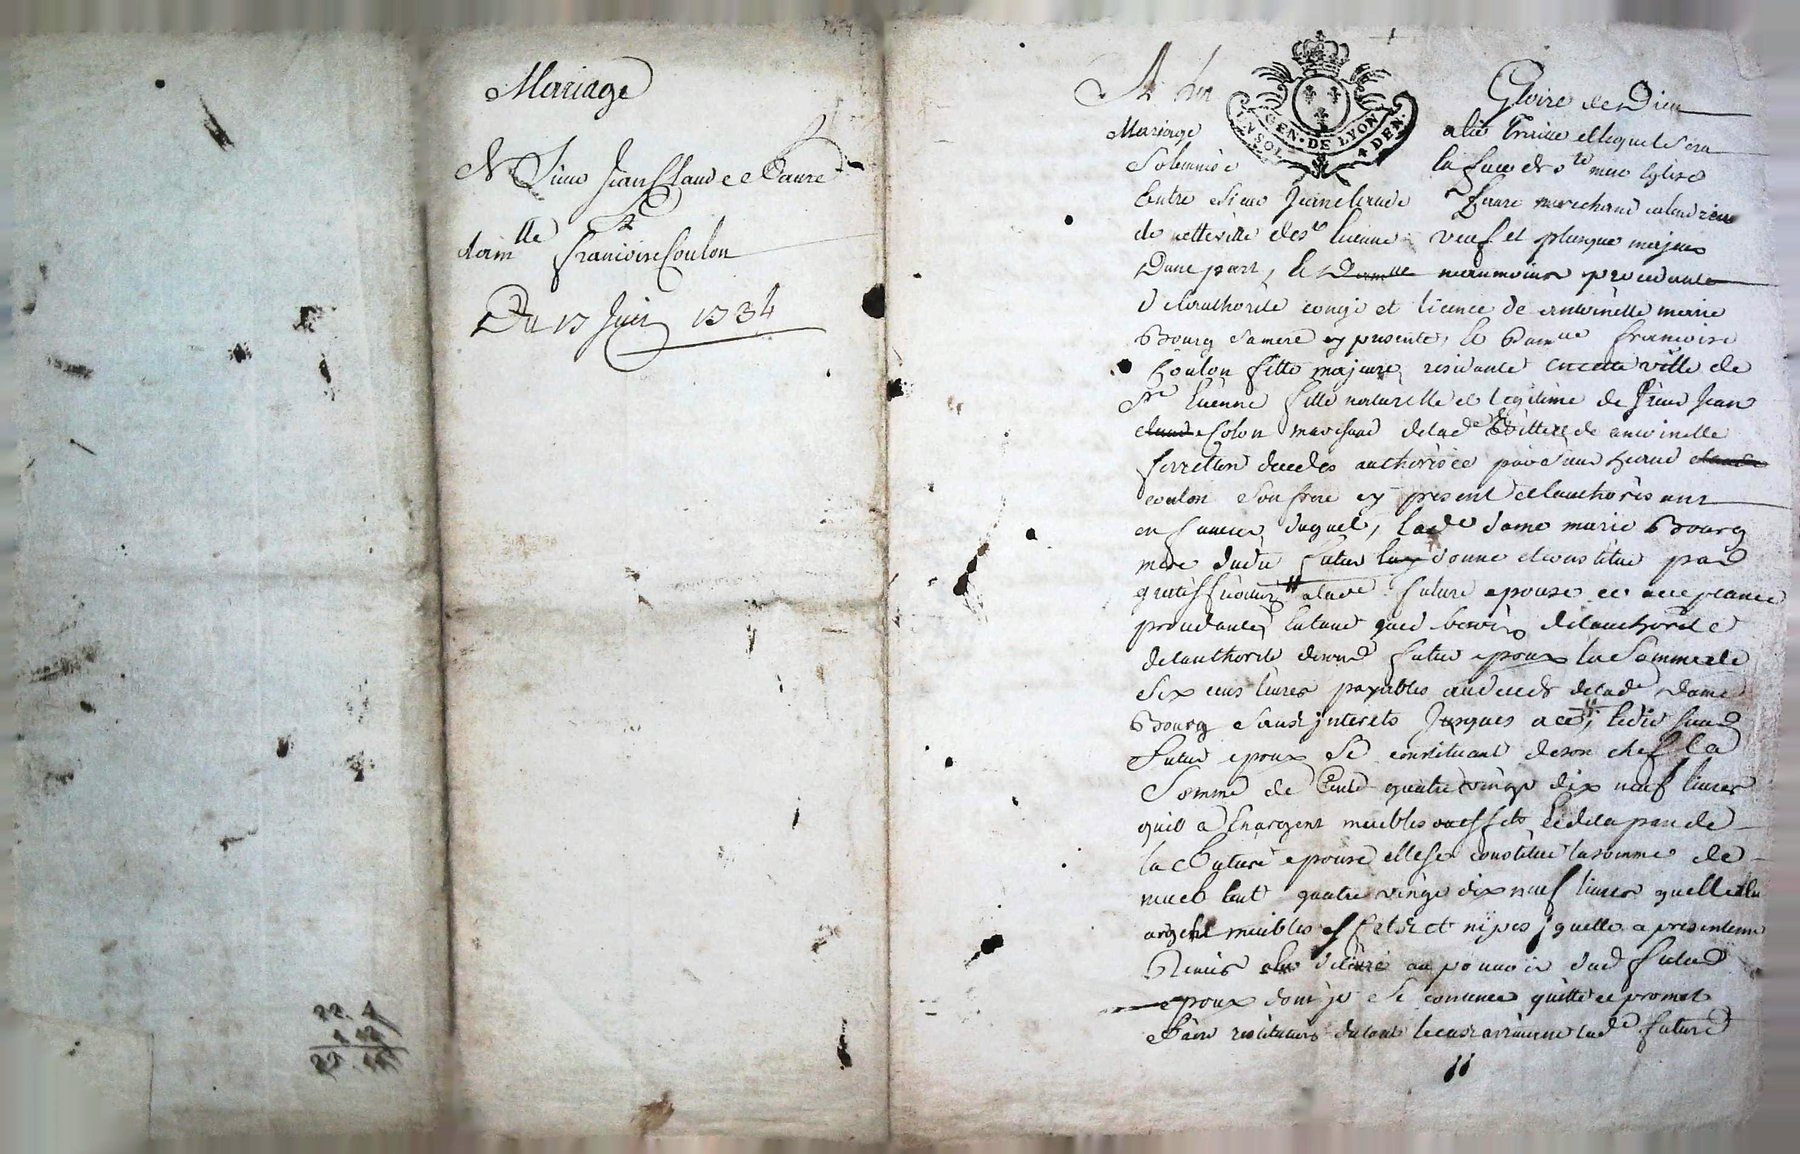 Mariage
Sieur Jean Claude Faure
&
dem^lle Francoise Coulon
Du 17 Juin 1784
22. 4
A
Gloire de Dieu
GEN. DE LYON
UN SOL 4 DEN.
Mariage a été traité et lequel sera
Solemnisé la face de s^te mere Eglise
Entre Sieur Jean Claude Faure marchand
de cette ville de s^t Etienne veuf et plusque majeur
Dune part, neanmoins procedante
de lauthorité congé et licence de antoinette marie
Bourg sa mere cy presente, Francoise
Coulon fille majeure, residante en cette ville de
S^t Etienne fille naturelle et légitime de Sieur Jean
Colon marchand de antoinette
authorisée
coulon son frere cy present et lauthorisant
en faveur duquel, lad^e dame marie Bourg
mere dudit futur donne et constitue par
future epouse ce acceptante
procedante de lauthorité
de lauthorité desond futur epoux la somme de
Six cens livres payables au deces de lad^e Dame
Bourg Sans jnterets Jusques a ce, ledit
Futur epoux se constituant de son chef la
Somme de Cent quatre vingt dix neuf livres
quil a En argent meubles ou effets Et de la part de
la Future epouse elle se constitue la somme de
neuf cent quatre vingt dix neuf livres quelle a En
argent meubles effets et nipes, quelle a presentement
Remis au pouvoir dud Futur
epoux dont jl se contente quitte et promet
Faire restituer lad^e future